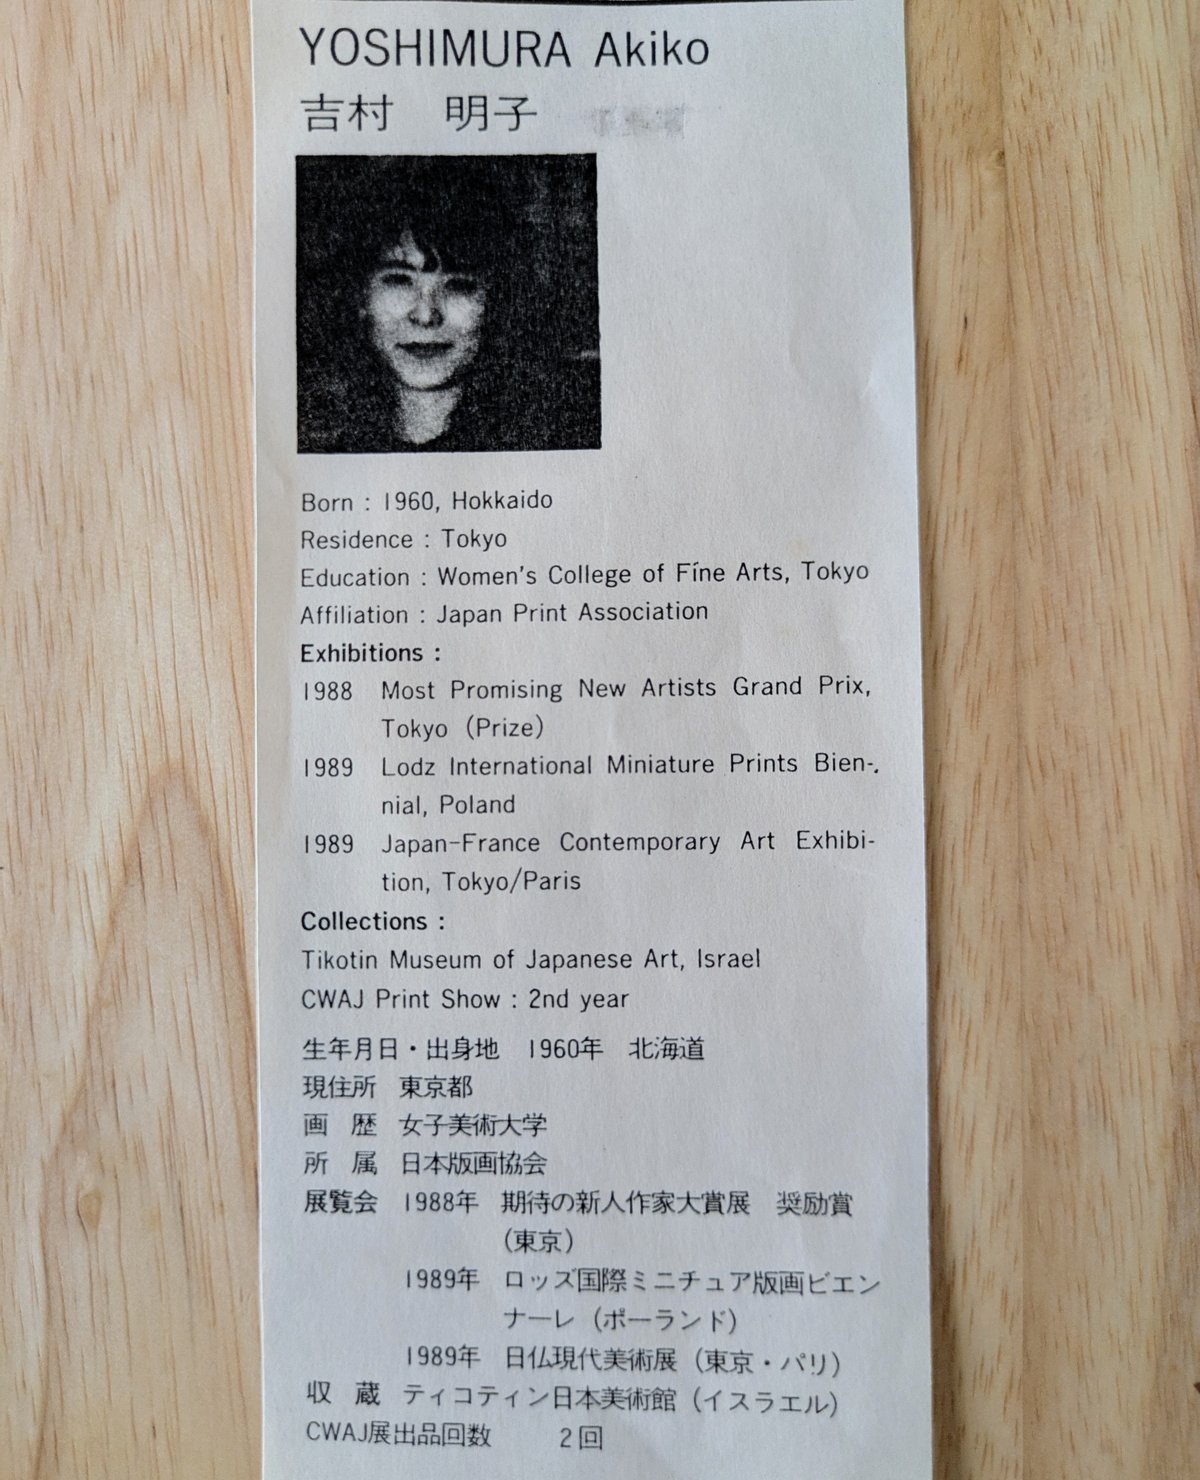 YOSHIMURA Akiko
吉村　明子
Born : 1960, Hokkaido
Residence : Tokyo
Education : Women's College of Fine Arts, Tokyo
Affiliation : Japan Print Association
Exhibitions :
1988 Most Promising New Artists Grand Prix,
Tokyo (Prize)
1989 Lodz International Miniature Prints Bien-
nial, Poland
1989 Japan-France Contemporary Art Exhibi-
tion, Tokyo/Paris
Collections :
Tikotin Museum of Japanese Art, Israel
CWAJ Print Show : 2nd year
生年月日・出身地　1960年　北海道
現住所　東京都
画　歴　女子美術大学
所　属　日本版画協会
展覧会　1988年　期待の新人作家大賞展　奨励賞
（東京）
1989年　ロッズ国際ミニチュア版画ビエン
ナーレ（ポーランド）
1989年　日仏現代美術展（東京・パリ）
収　蔵　ティコティン日本美術館（イスラエル）
CWAJ展出品回数　2回